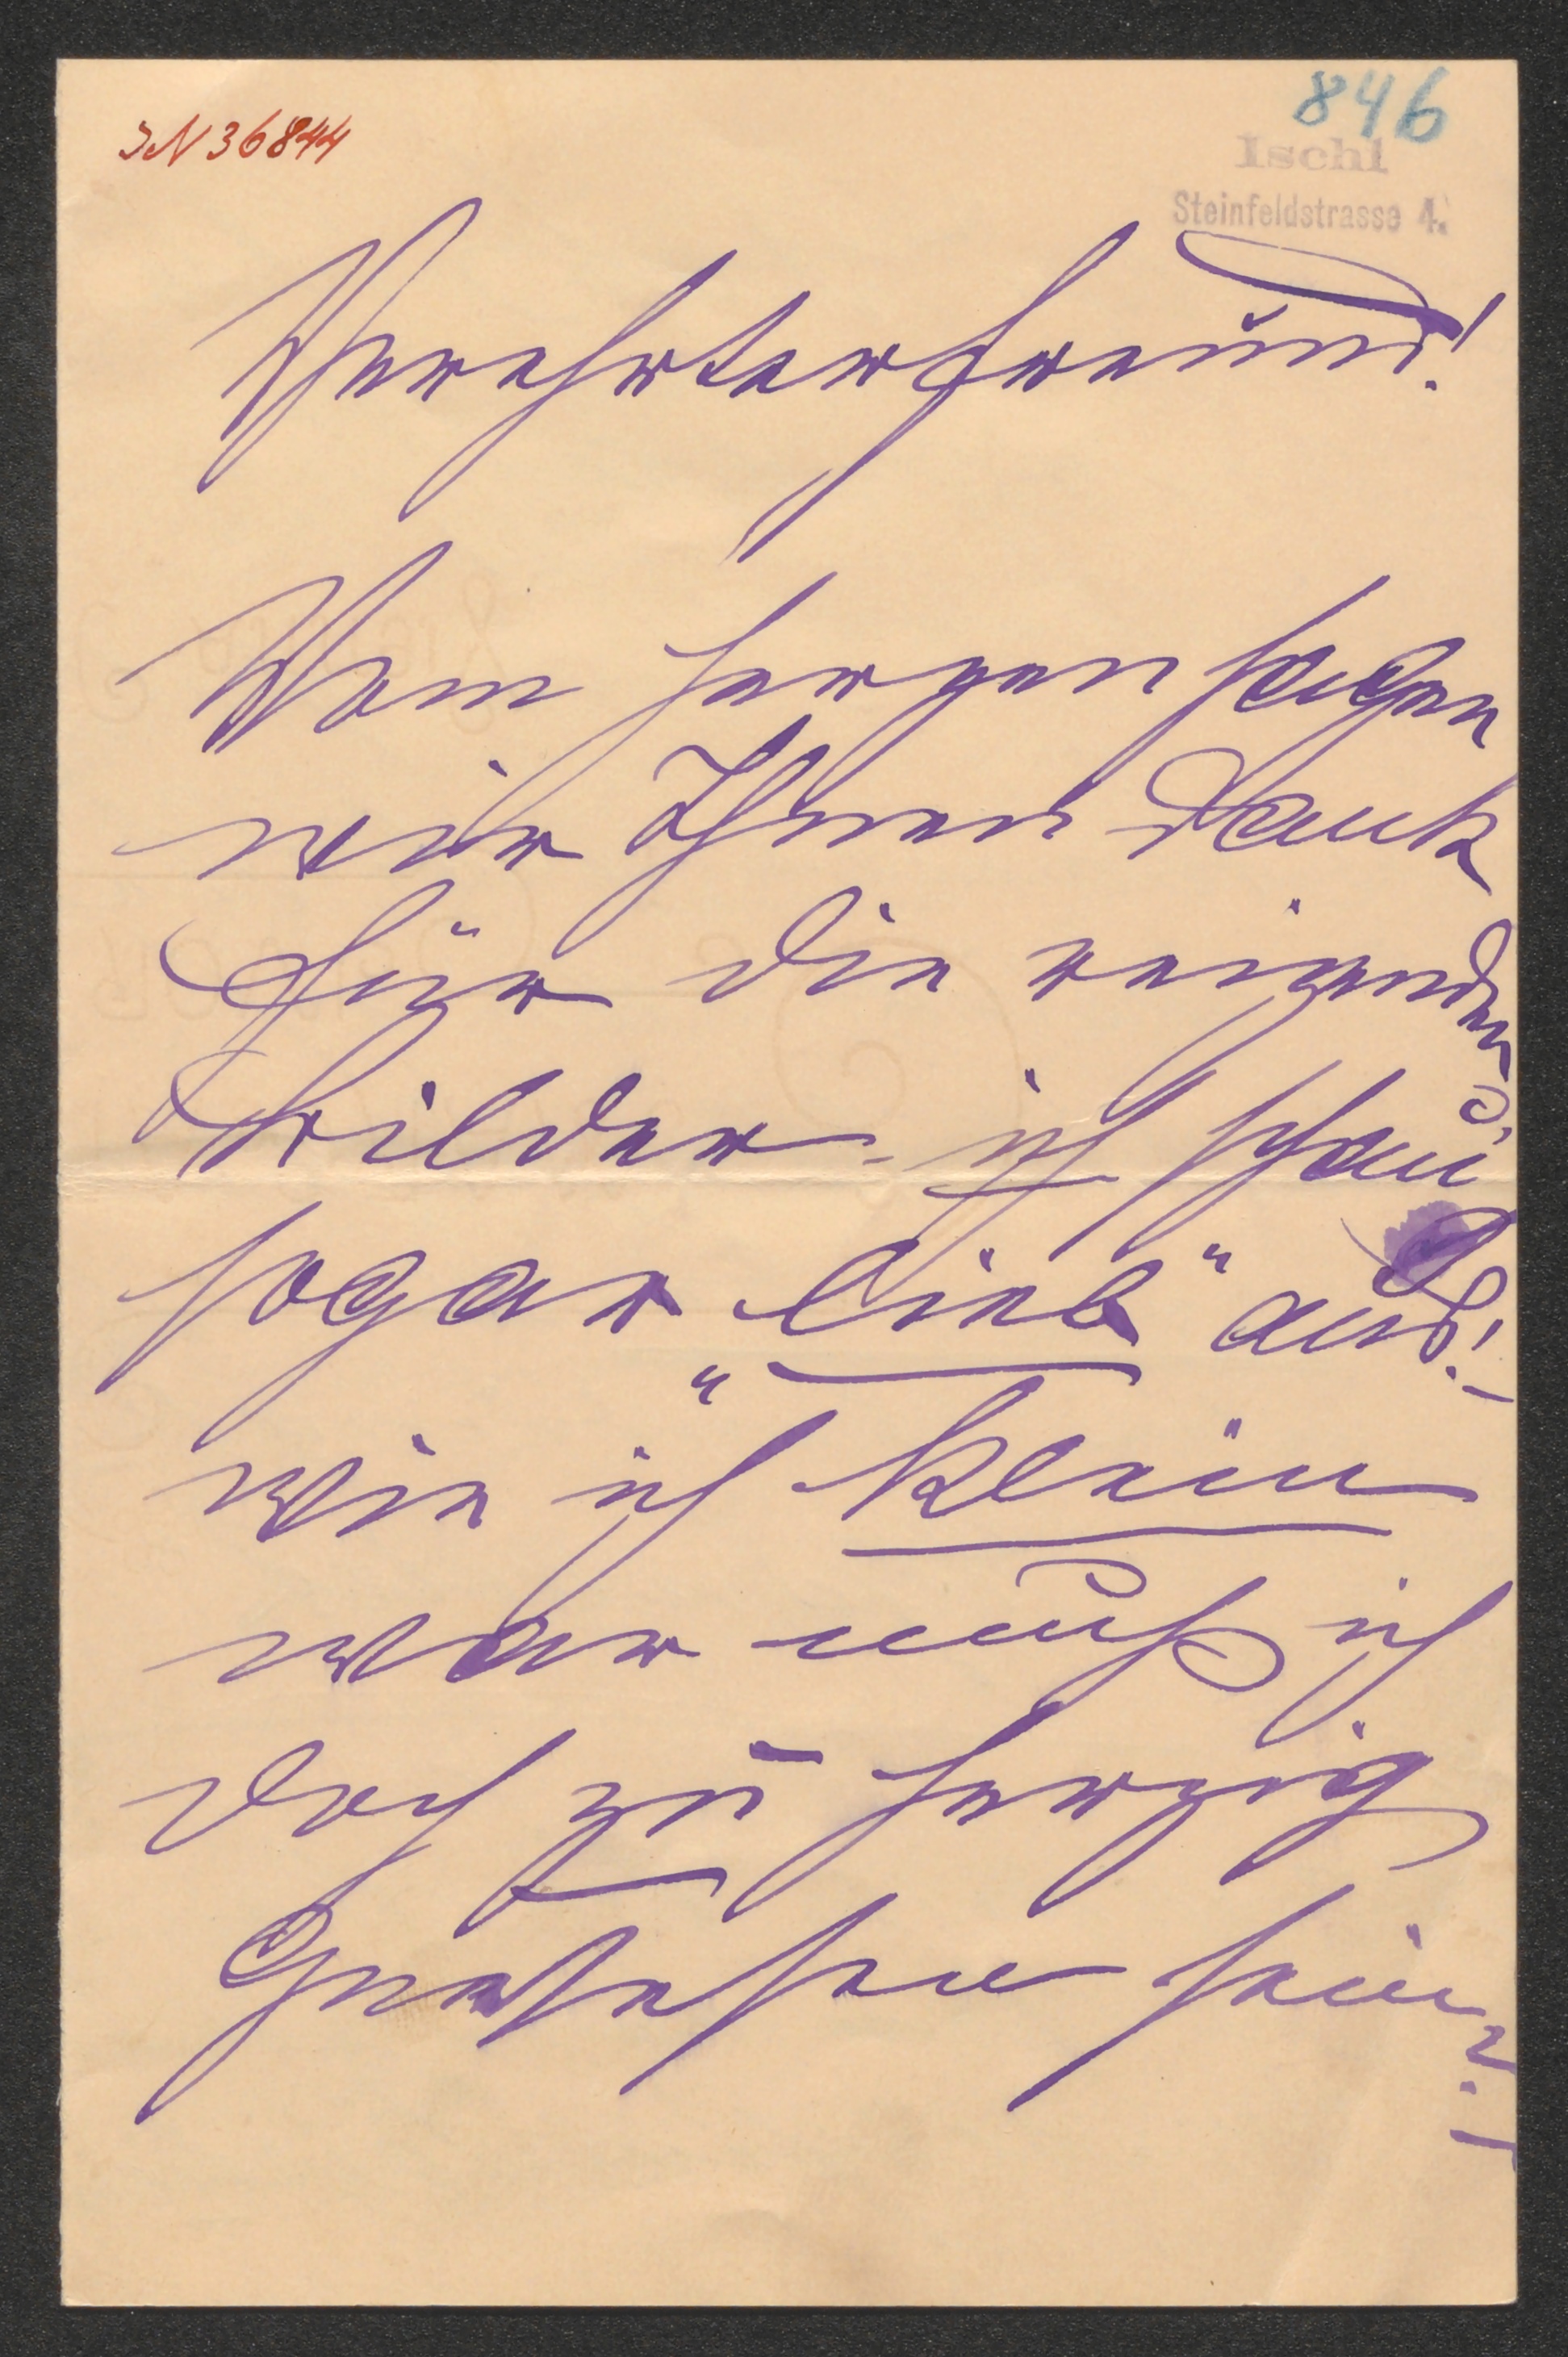 JN 36844
846
Ischl
Steinfeldstrasse 4.
Verehrter Freund!
Vom Herzen sagen
wir Ihnen Dank
für die reizenden
Bilder - ich schau
sogar „lieb“ aus! -
wie ich klein
war muß ich
doch zu herzig
gewesen sein